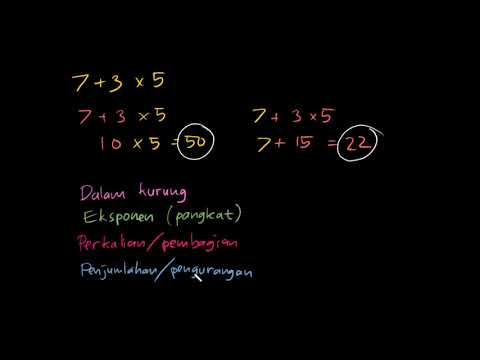 7 + 3 × 5
7 + 3 × 5
10 × 5 = 50
7 + 3 × 5
7 + 15 = 22
Dalam kurung
Eksponen (pangkat)
Perkalian/pembagian
Penjumlahan/pengurangan